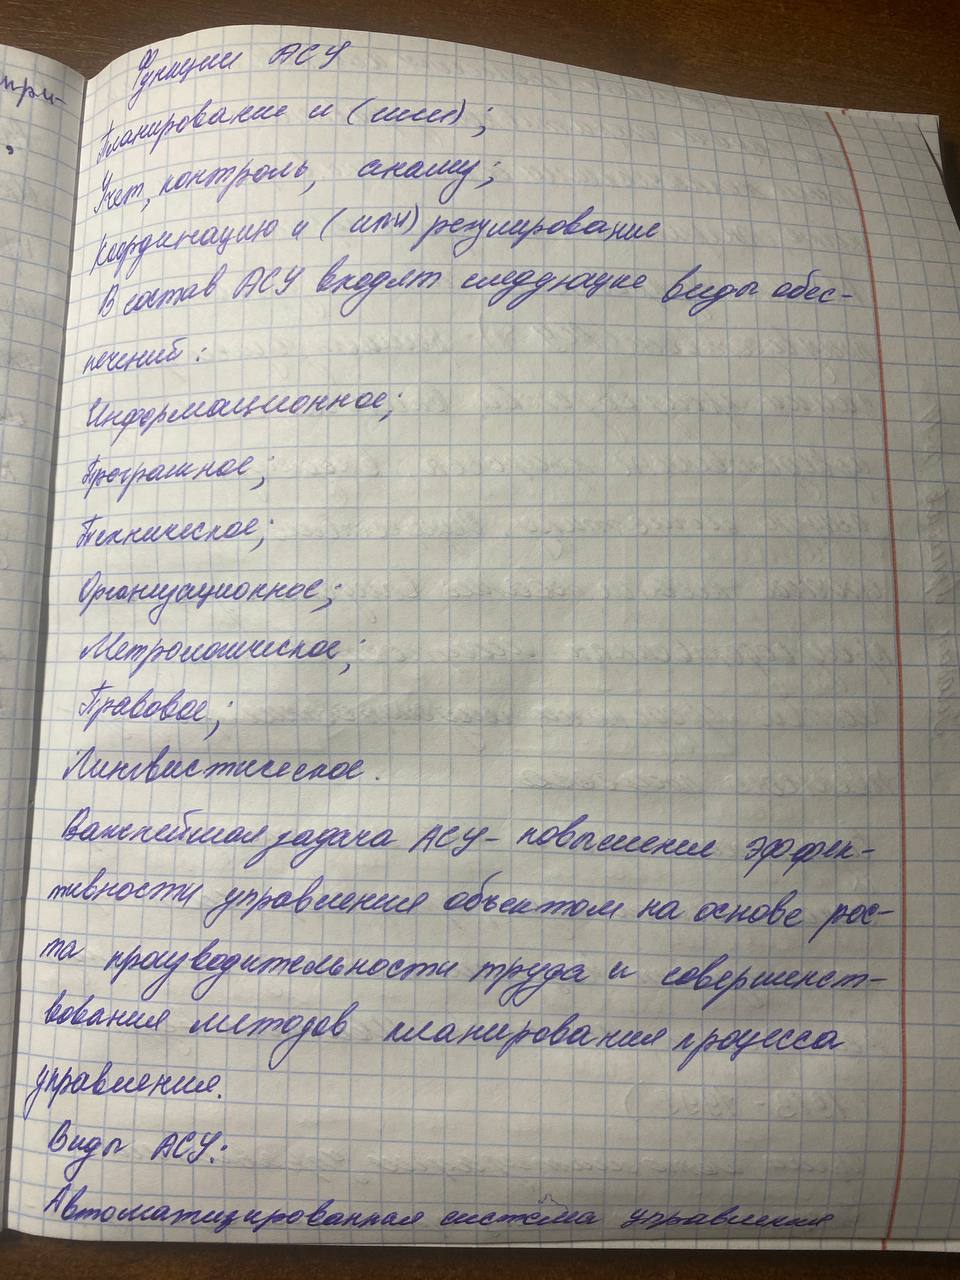 при-
,
Функции АСУ
Планирование и (или);
Учет, контроль, анализ;
Координацию и (или) регулирование
В состав АСУ входят следующие виды обес-
печений:
Информационное;
Програмное;
Техническое;
Организационное;
Метрологическое;
Правовое;
Лингвистическое.
Важнейшая задача АСУ - повышения эффек-
тивности управления объектом на основе рос-
та производительности труда и совершенст-
вования методов планирования процесса
управления.
Виды АСУ:
Автоматизированная система управления